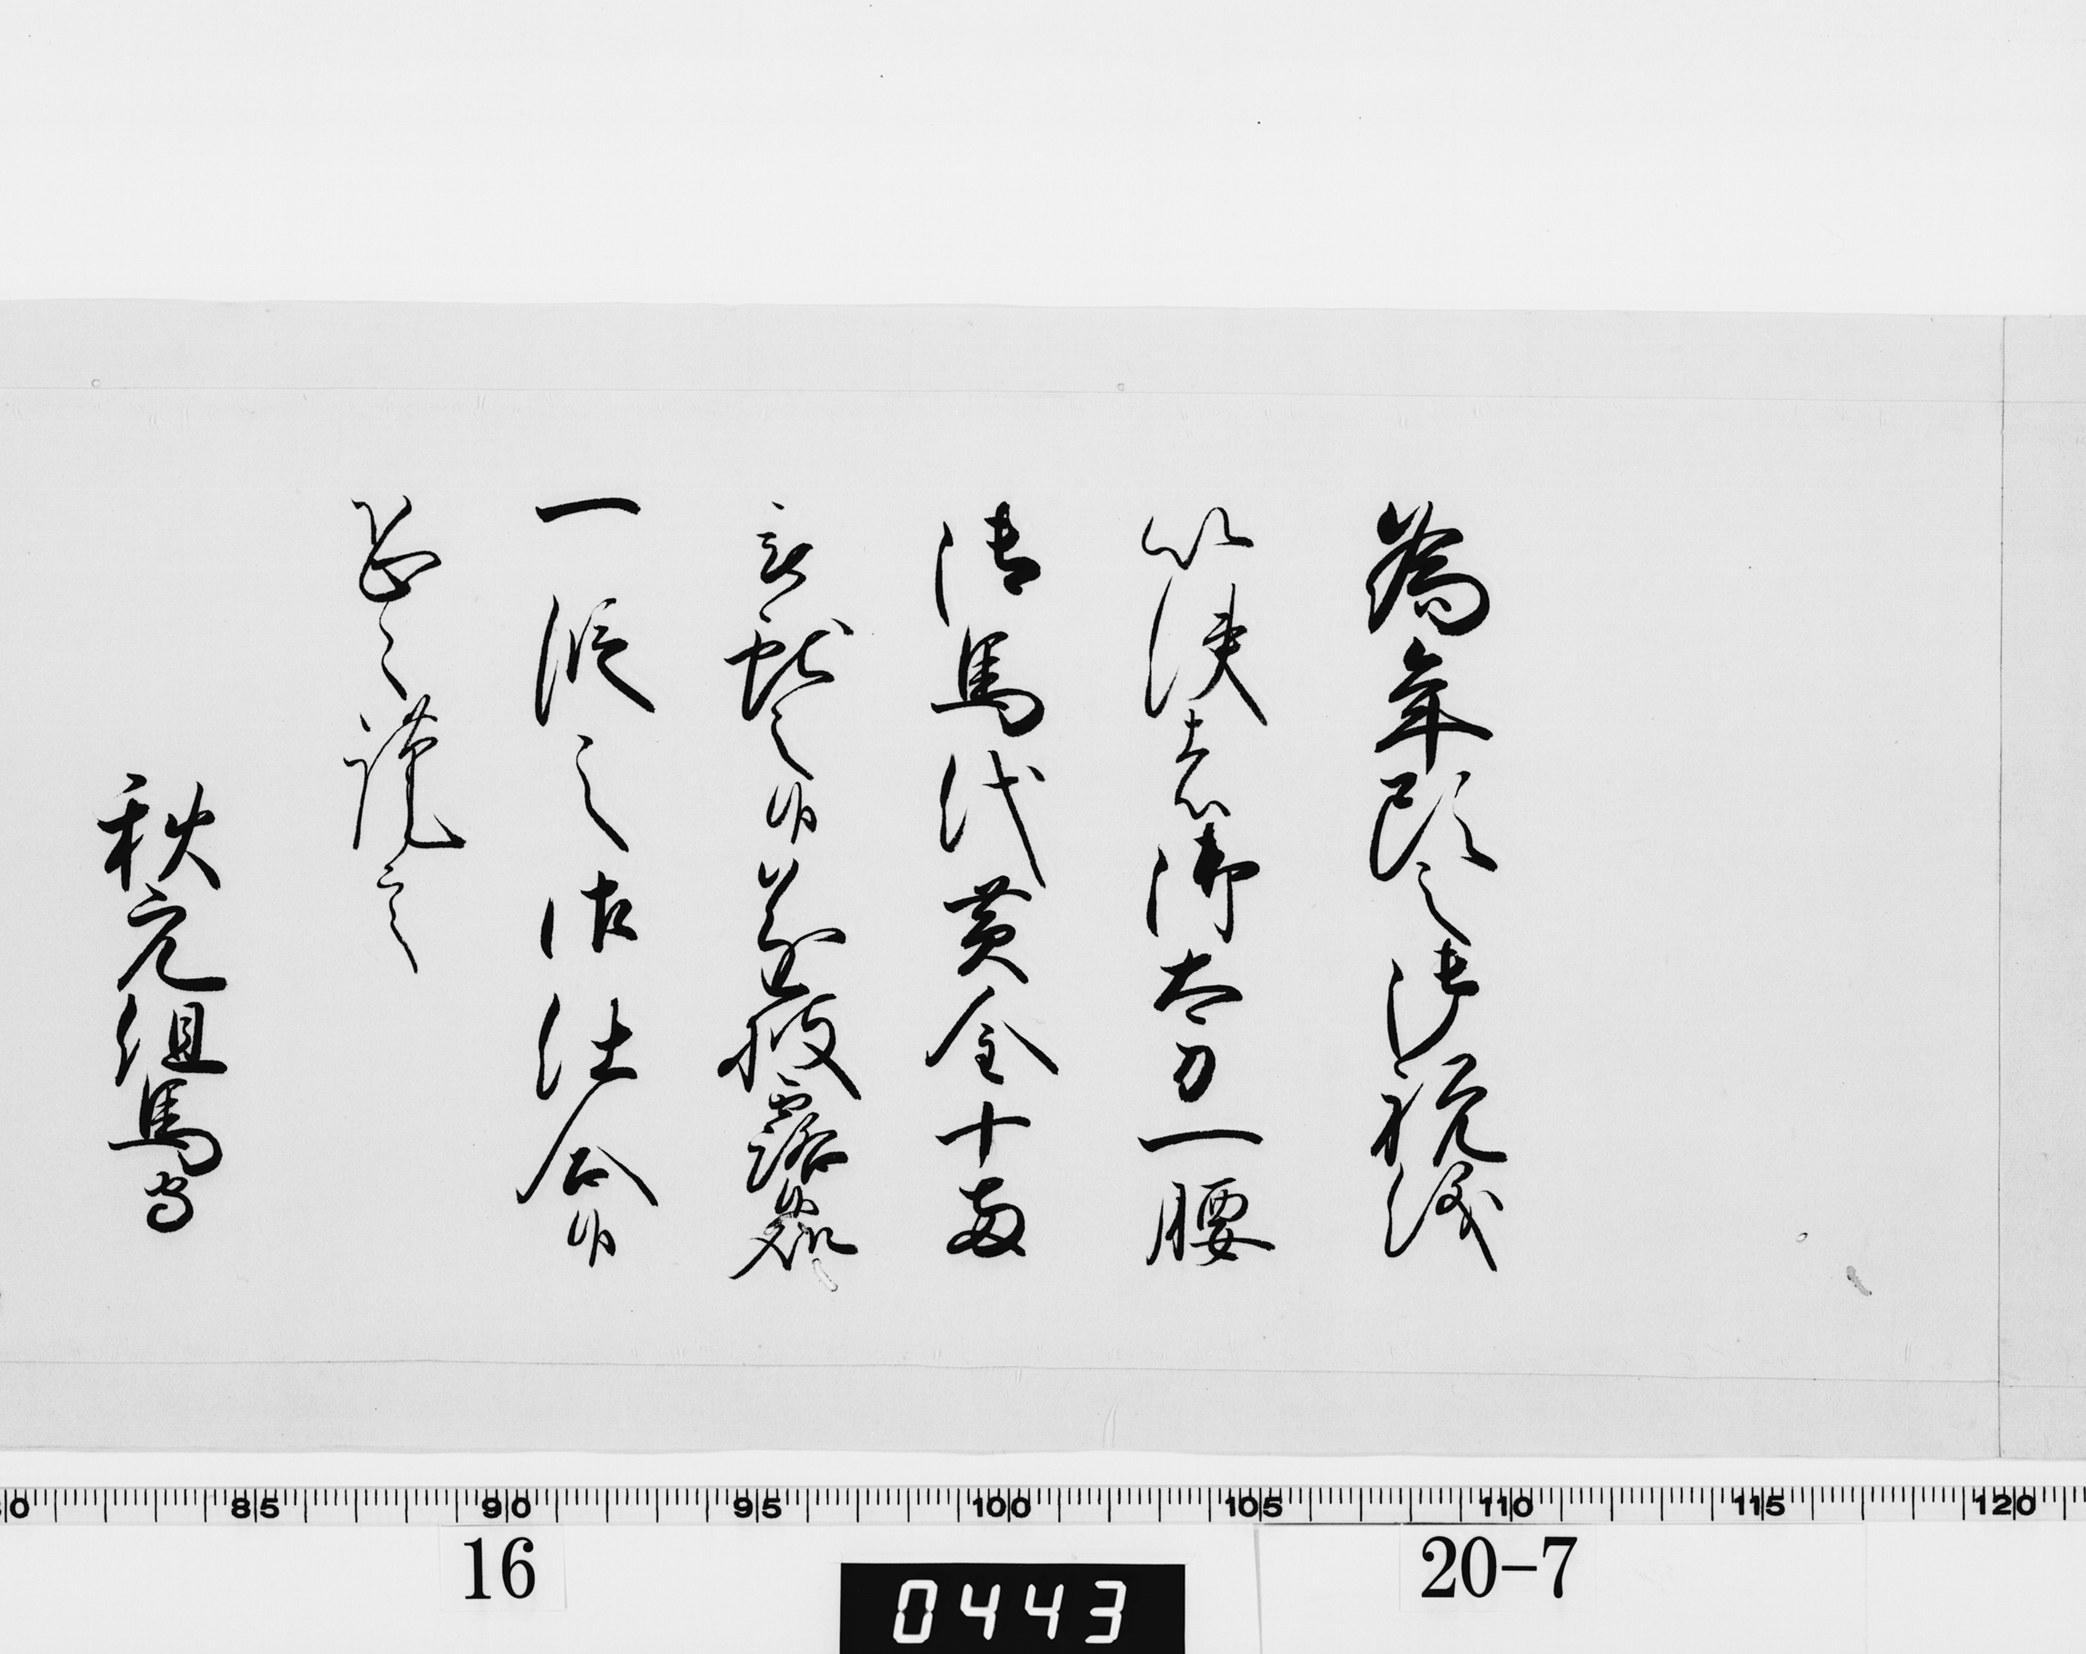 為年頭之御祝儀
以使者御太刀一腰
御馬代黄金十両
献之候遂披露候処
一段之御仕合候
恐々謹言
秋元但馬守
80 85 90 95 100 105 110 115 120
16 20-7
0443